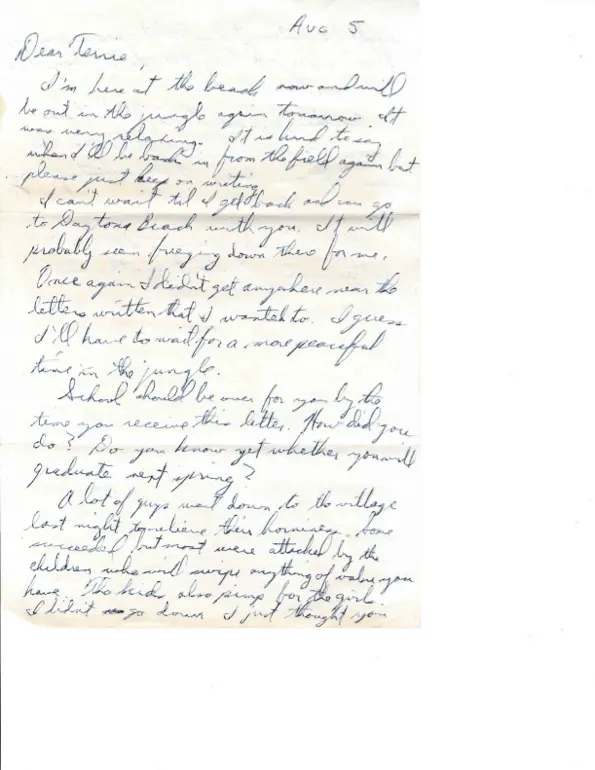 Aug 5
Dear Terrie,
I'm here at the beach now and will
be out in the jungle again tomorrow. It
was very relaxing. It is hard to say
when I'll be back in from the field again but
please just keep on writing.
I can't wait til I get back and can go
to Daytona Beach with you. It will
probably seem freezing down there for me.
Once again I didn't get anywhere near the
letters written that I wanted to. I guess
I'll have to wait for a more peaceful
time in the jungle.
School should be over for you by the
time you receive this letter. How did you
do? Do you know yet whether you will
graduate next spring?
A lot of guys went down to the village
last night to relieve their horniness. Some
succeeded, but most were attacked by the
children who will swipe anything of value you
have. The kids also pimp for the girls.
I didn't go down. I just thought you